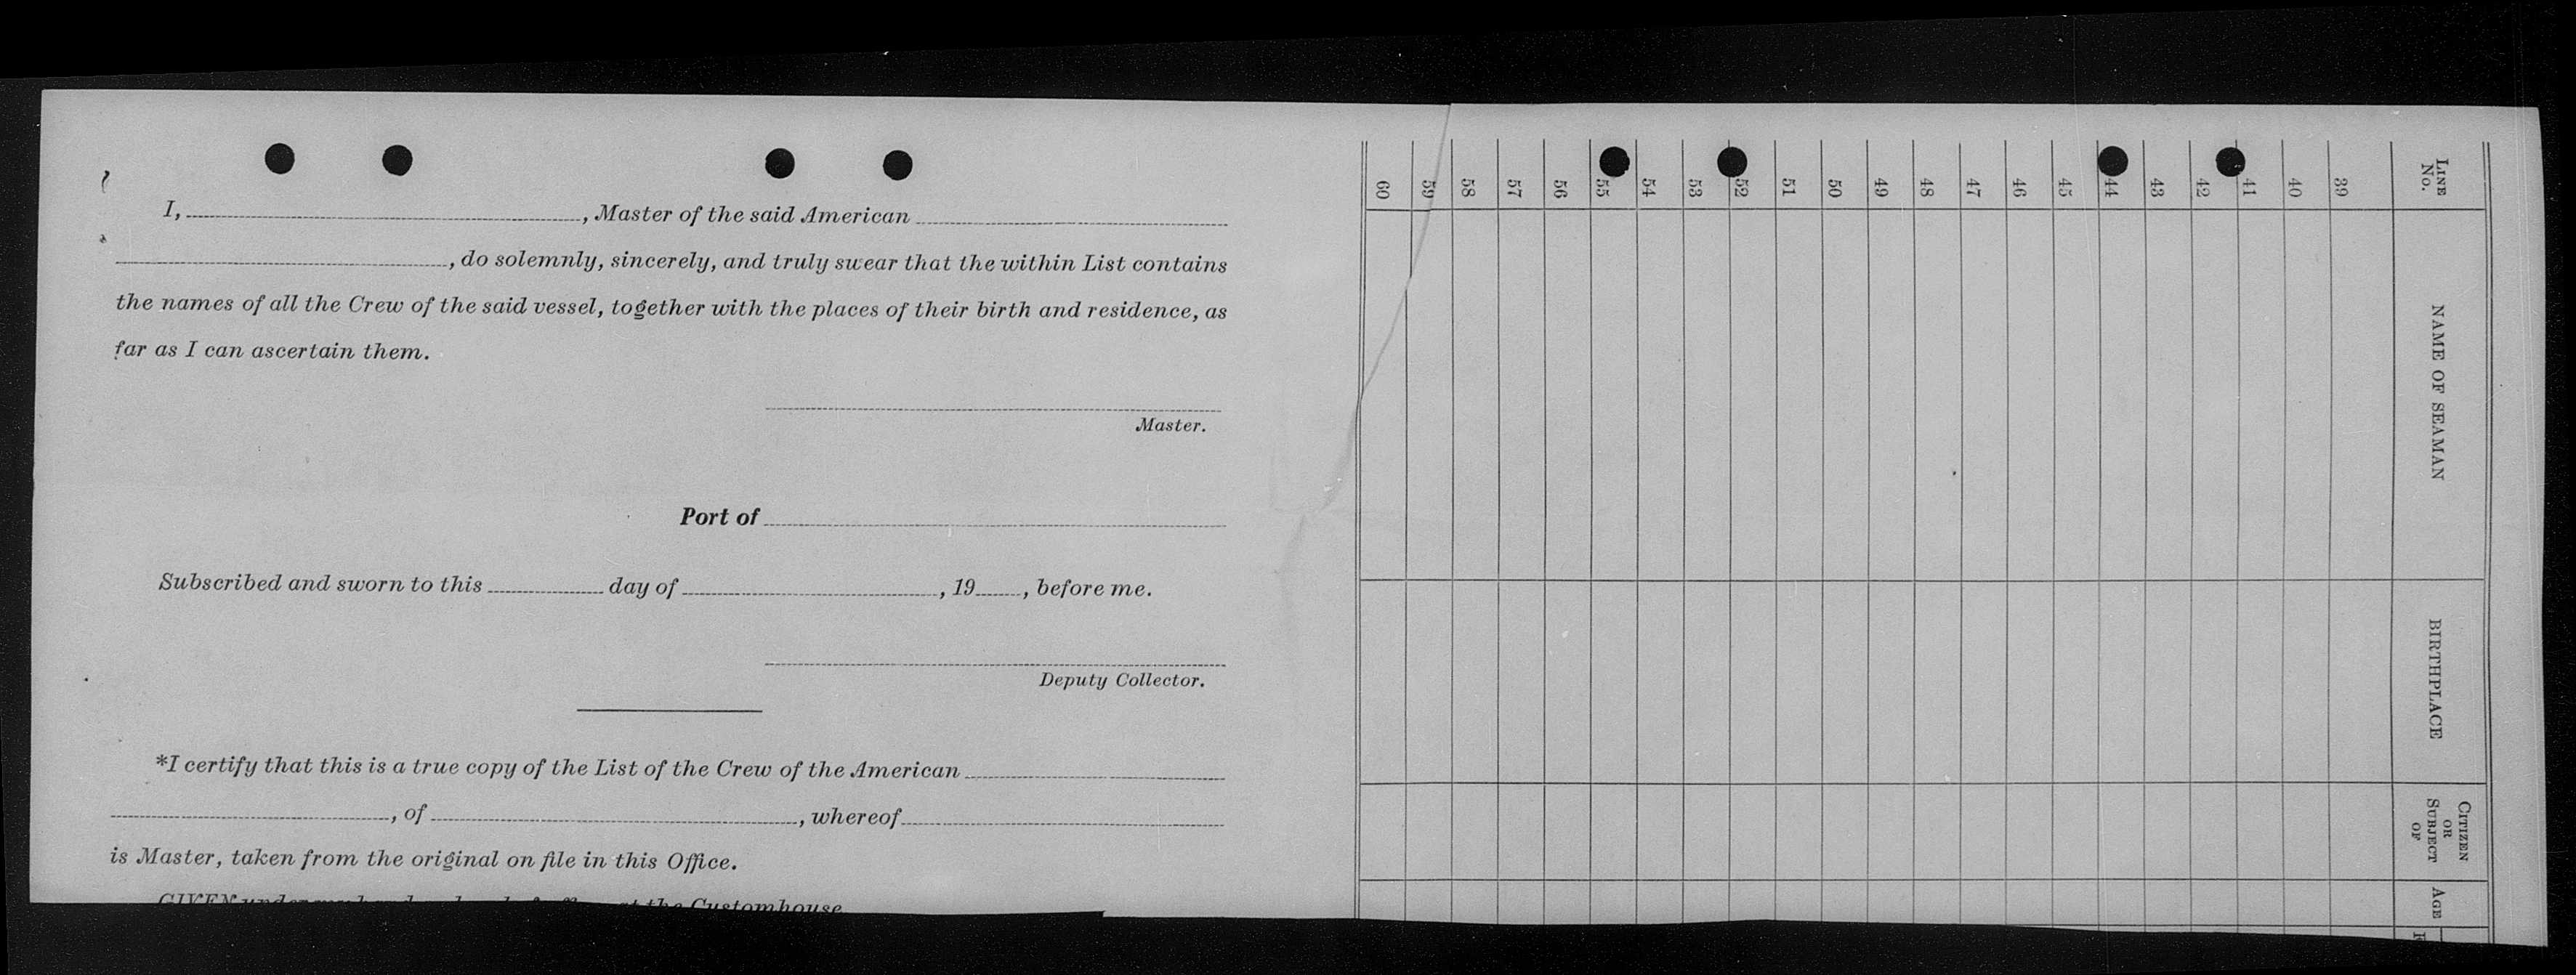 I, , Master of the said American
, do solemnly, sincerely, and truly swear that the within List contains
the names of all the Crew of the said vessel, together with the places of their birth and residence, as
far as I can ascertain them.
Master.
Port of
Subscribed and sworn to this day of , 19 , before me.
Deputy Collector.
*I certify that this is a true copy of the List of the Crew of the American
, of , whereof
is Master, taken from the original on file in this Office.
GIVEN under my hand and seal of office at the Customhouse
LINE No.
NAME OF SEAMAN
BIRTHPLACE
CITIZEN OR SUBJECT OF
AGE
39
40
41
42
43
44
45
46
47
48
49
50
51
52
53
54
55
56
57
58
59
60